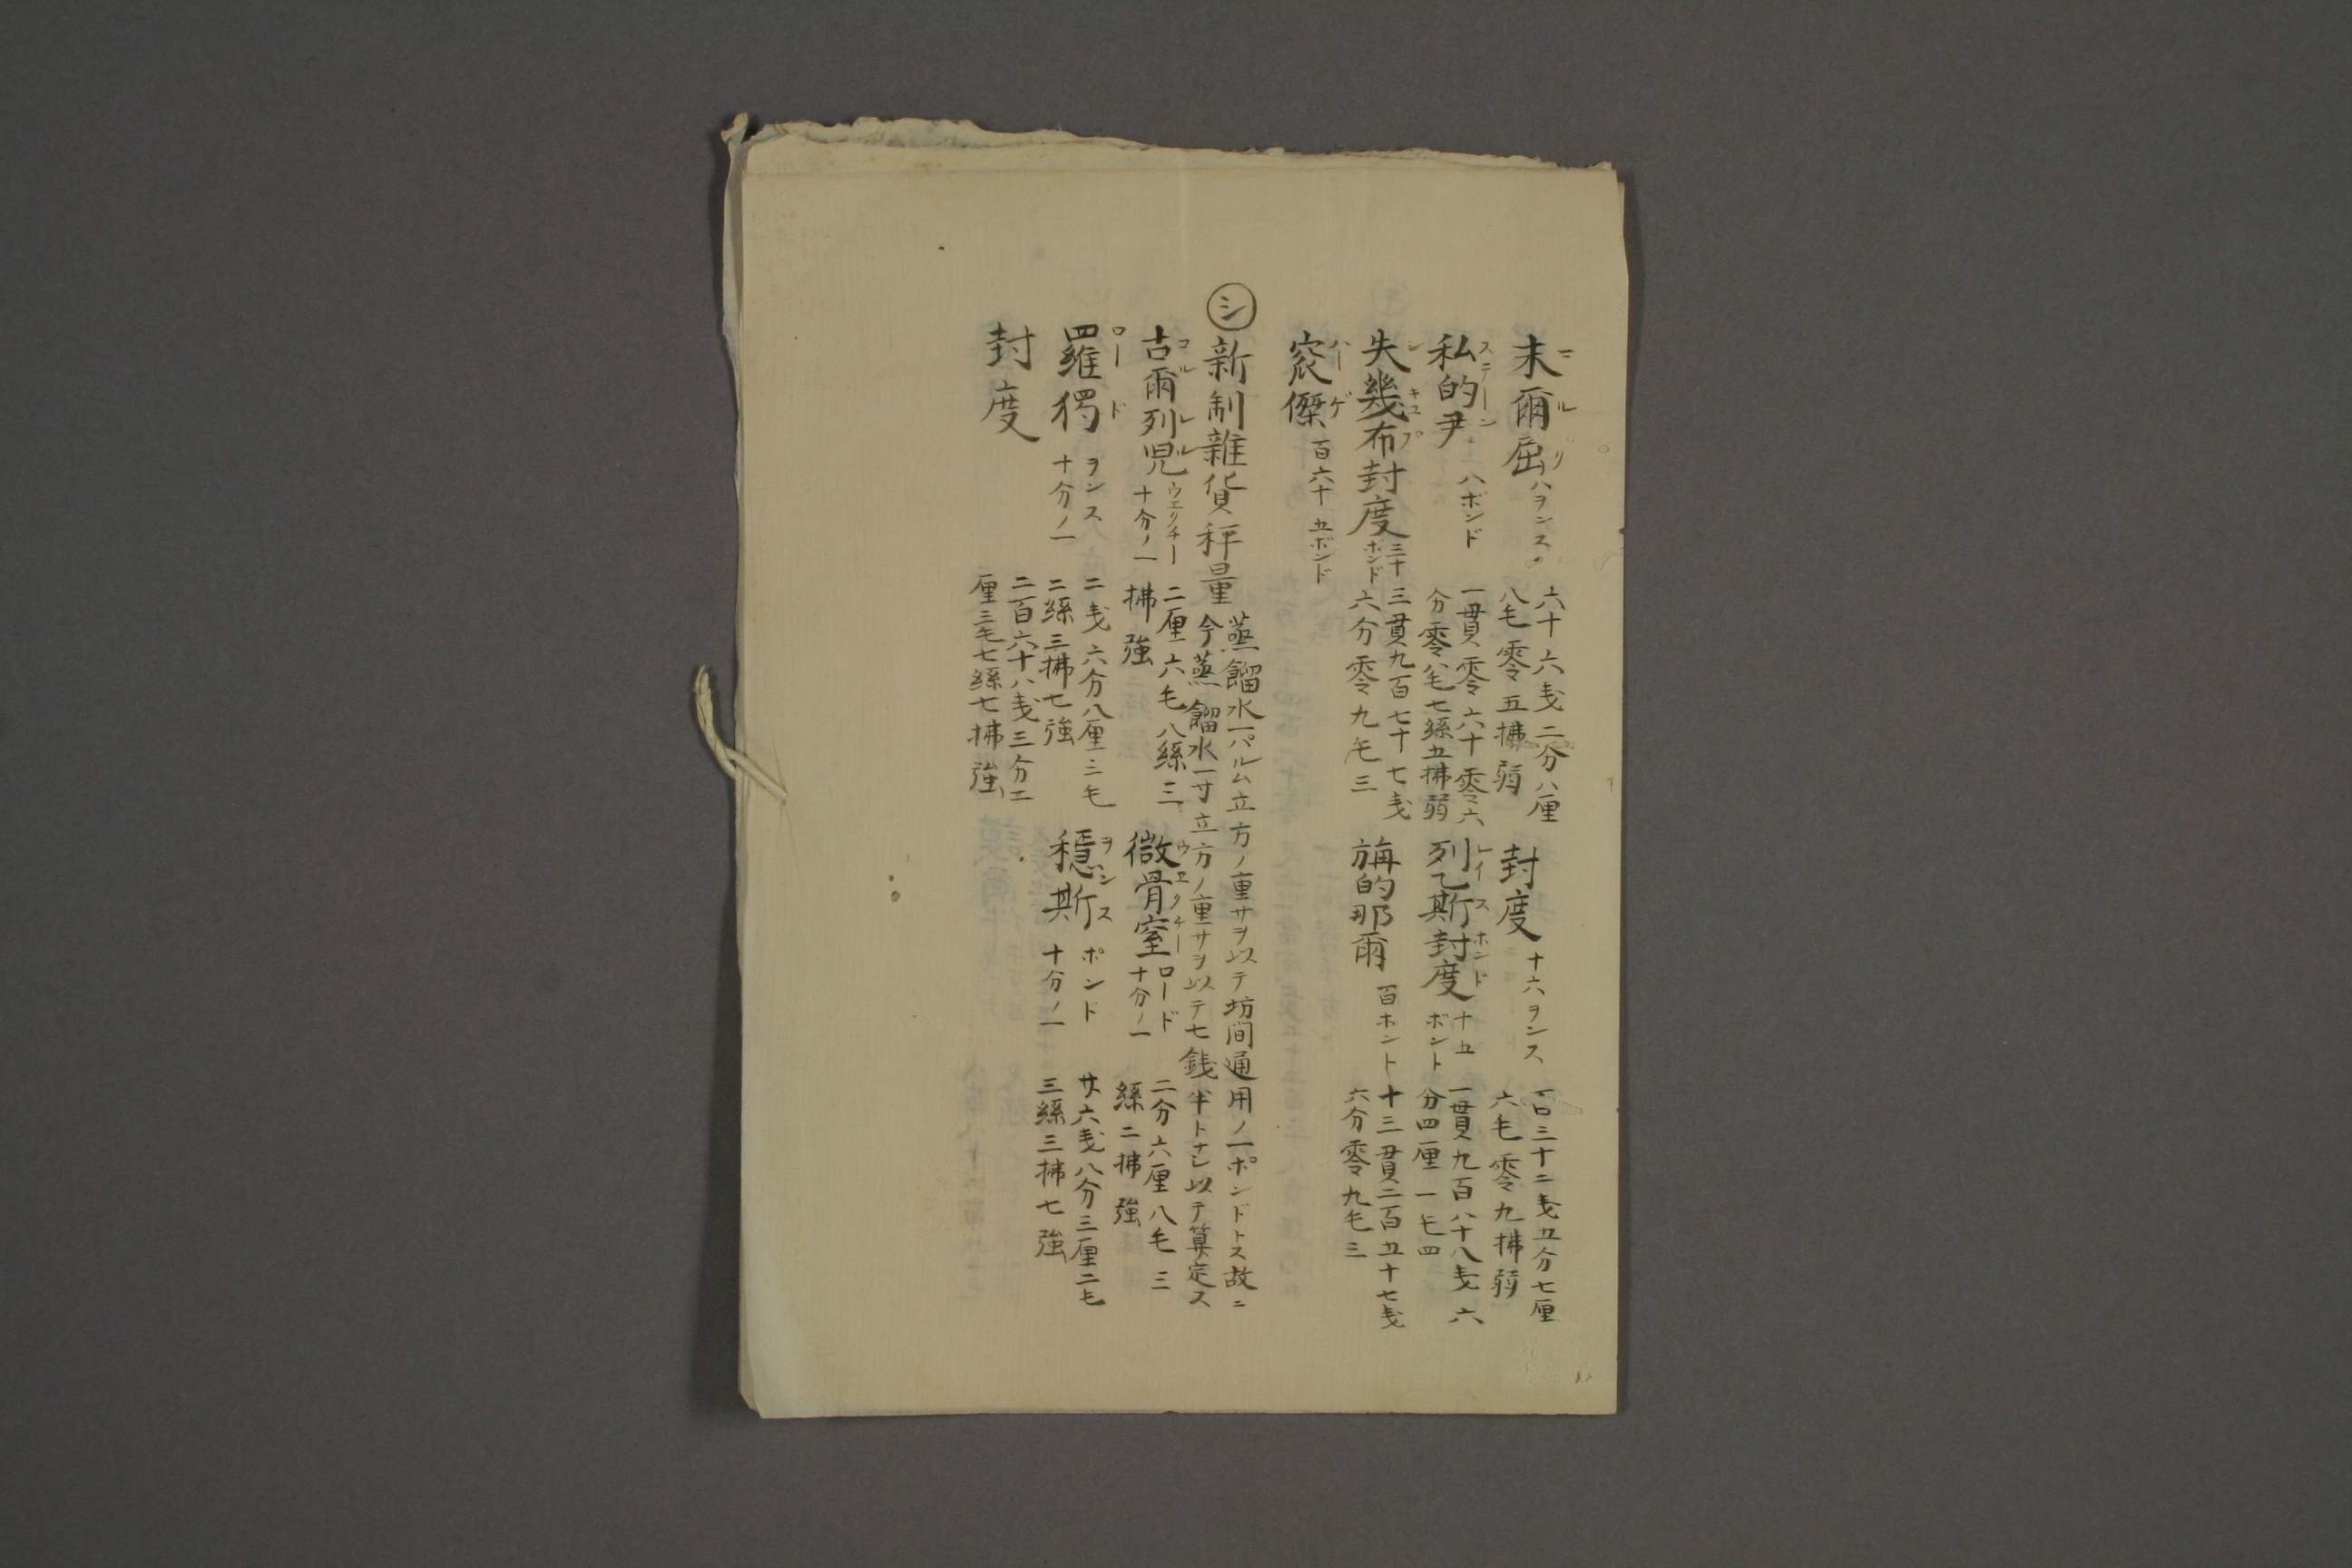 末爾屈 八ヲンス 六十六戔二分八厘八毛零五拂弱
封度 十六ヲンス 百三十二戔五分七厘六毛零九拂弱
私的尹 ステーン 八ポンド 一貫零六十零六分零八毛七絲五拂弱
列乙斯封度 レイスホンド 十五ボント 一貫九百八十八戔六分四厘一毛四
失幾布封度 シキユプ 三十ボンド 三貫九百七十七戔六分零九毛三
旃的那爾 百ホント 十三貫二百五十七戔六分零九毛三
ハーゲ 百六十五ボンド
シ 新制雑貨秤量 蒸餾水一パルム立方ノ重サヲ以テ坊間通用ノ一ポンドトス故ニ
今蒸餾水一寸立方ノ重サヲ以テ七銭半トナシ以テ算定ス
古爾列児 コルレル ウエクチー十分ノ一 二厘六毛八絲三拂強
微骨窒 ウエクチー ロード十分ノ一 二分六厘八毛三絲二拂強
羅獨 ロード ヲンス十分ノ一 二戔六分八厘三毛二絲三拂七強
穏斯 ヲンス ポンド十分ノ一 廿六戔八分三厘二毛三絲三拂七強
封度 二百六十八戔三分二厘三毛七絲七拂強